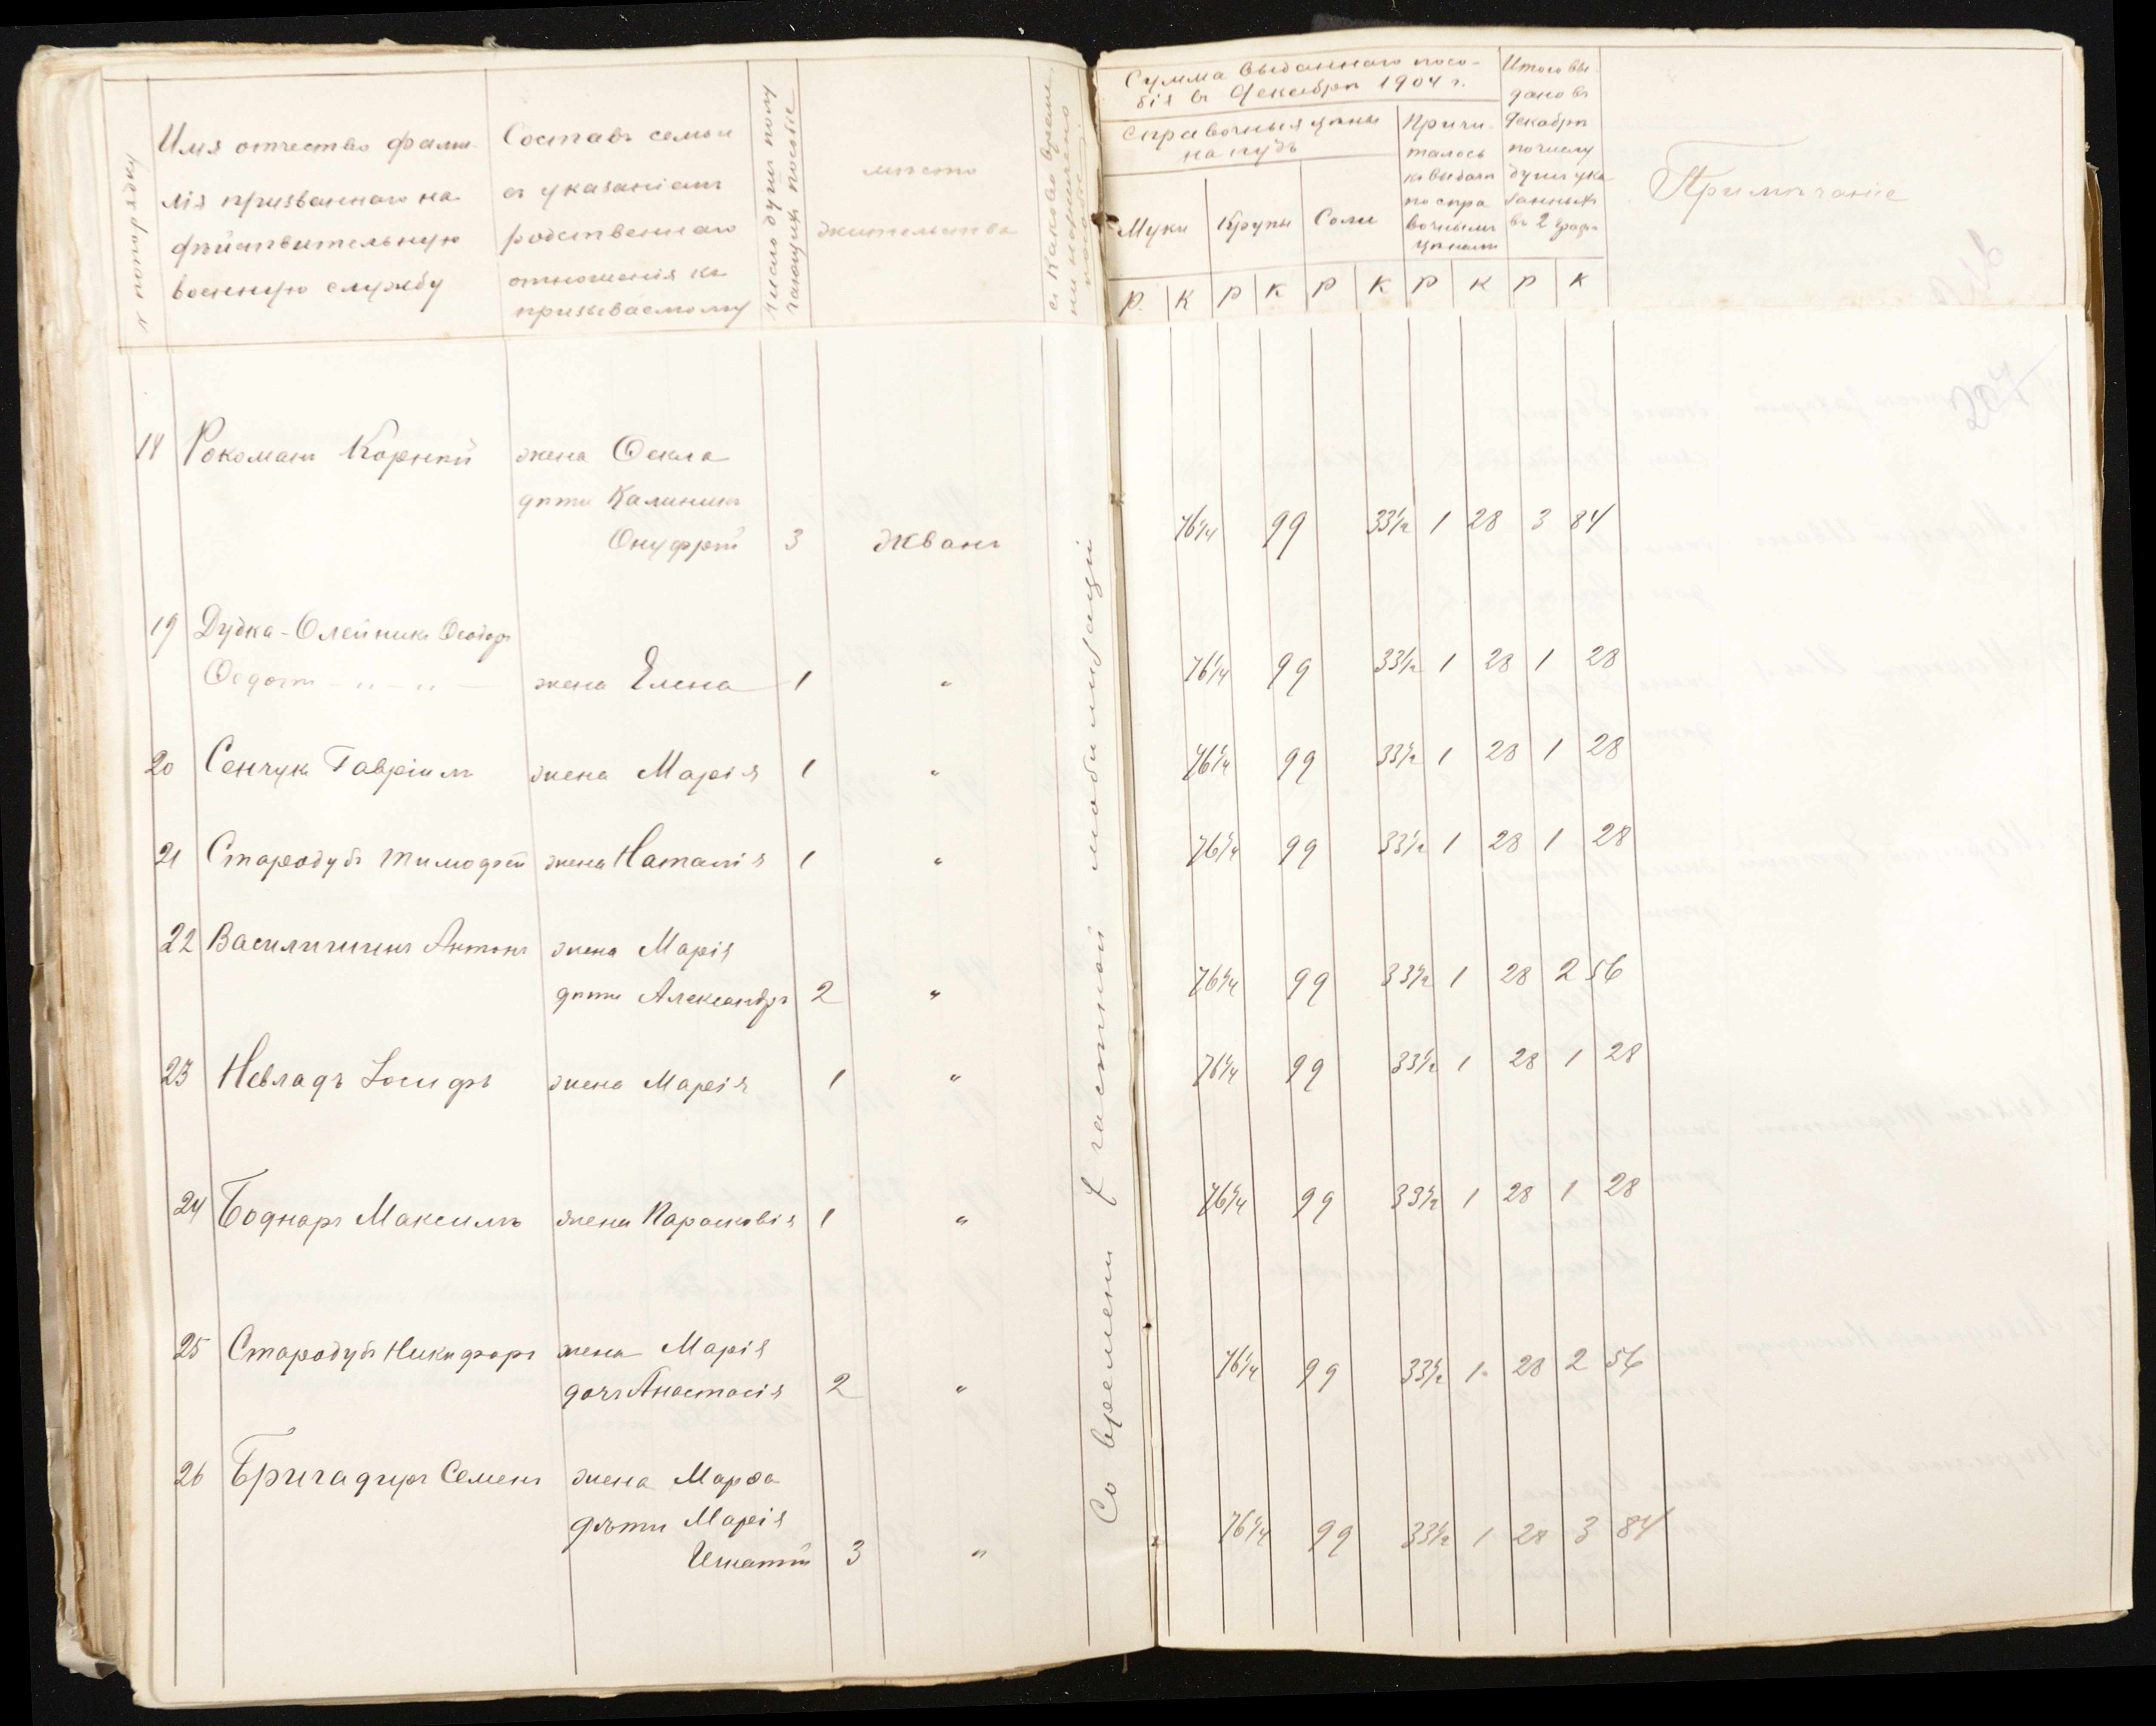 № по порядку
Имя отчество фами-
лія призваннаго на
дѣйствительную
военную службу
Составъ семьи
съ указаніемъ
родственнаго
отношенія къ
призываемому
Число душъ полу
чающихъ пособіе
мѣсто
жительства
съ какого време
ни назначено
пособіе
Сумма выданнаго посо-
бія въ Декабрѣ 1904 г.
Справочныя цѣны
на пудъ
Муки Крупы Соли
Причи-
талось
къ выдачи
по спра
вочнымъ
цѣнамъ
Итого вы-
дано въ
Декабрѣ
по числу
душъ ука
занныхъ
въ 2 граф.
Р. К Р К Р К Р К Р К
Примѣчаніе
18 Рокоманъ Корнѣй жена Ѳекла
дѣти Калиникъ
Онуфрій 3 Жванъ 76¼ 99 33½ 1 28 3 84
19 Дудка-Олейникъ Ѳеодоръ
Ѳедотъ — „ — „ — жена Елена 1 " 76¼ 99 33½ 1 28 1 28
20 Сенчукъ Гавріилъ жена Марія 1 " 76¼ 99 33½ 1 28 1 28
21 Стародубъ Тимофей жена Наталія 1 " 76¼ 99 33½ 1 28 1 28
22 Василишинъ Антонъ жена Марія
дѣти Александръ 2 " 76¼ 99 33½ 1 28 2 56
23 Невладъ Іосифъ жена Марія 1 " 76¼ 99 33½ 1 28 1 28
24 Боднаръ Максимъ жена Парасковія 1 " 76¼ 99 33½ 1 28 1 28
25 Стародубъ Никифоръ жена Марія
дочь Анастасія 2 " 76¼ 99 33½ 1 28 2 56
26 Бригадиръ Семенъ жена Марѳа
дѣти Марія
Игнатій 3 " 76¼ 99 33½ 1 28 3 84
Со времени 7 частной мобилизаціи